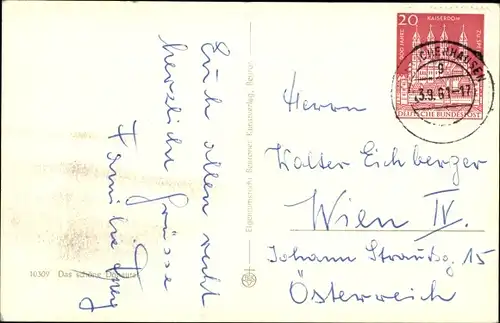 Euch allen recht
herzliche Grüsse
Familie
10309 Das schöne Donautal
Beuroner Kunstverlag, Beuron
20
KAISERDOM
900 JAHRE
ZU SPEYER
DEUTSCHE BUNDESPOST
9
3.9.61-17
Herrn
Walter Eichberger
Wien IV.
Johann Straußg. 15
Österreich